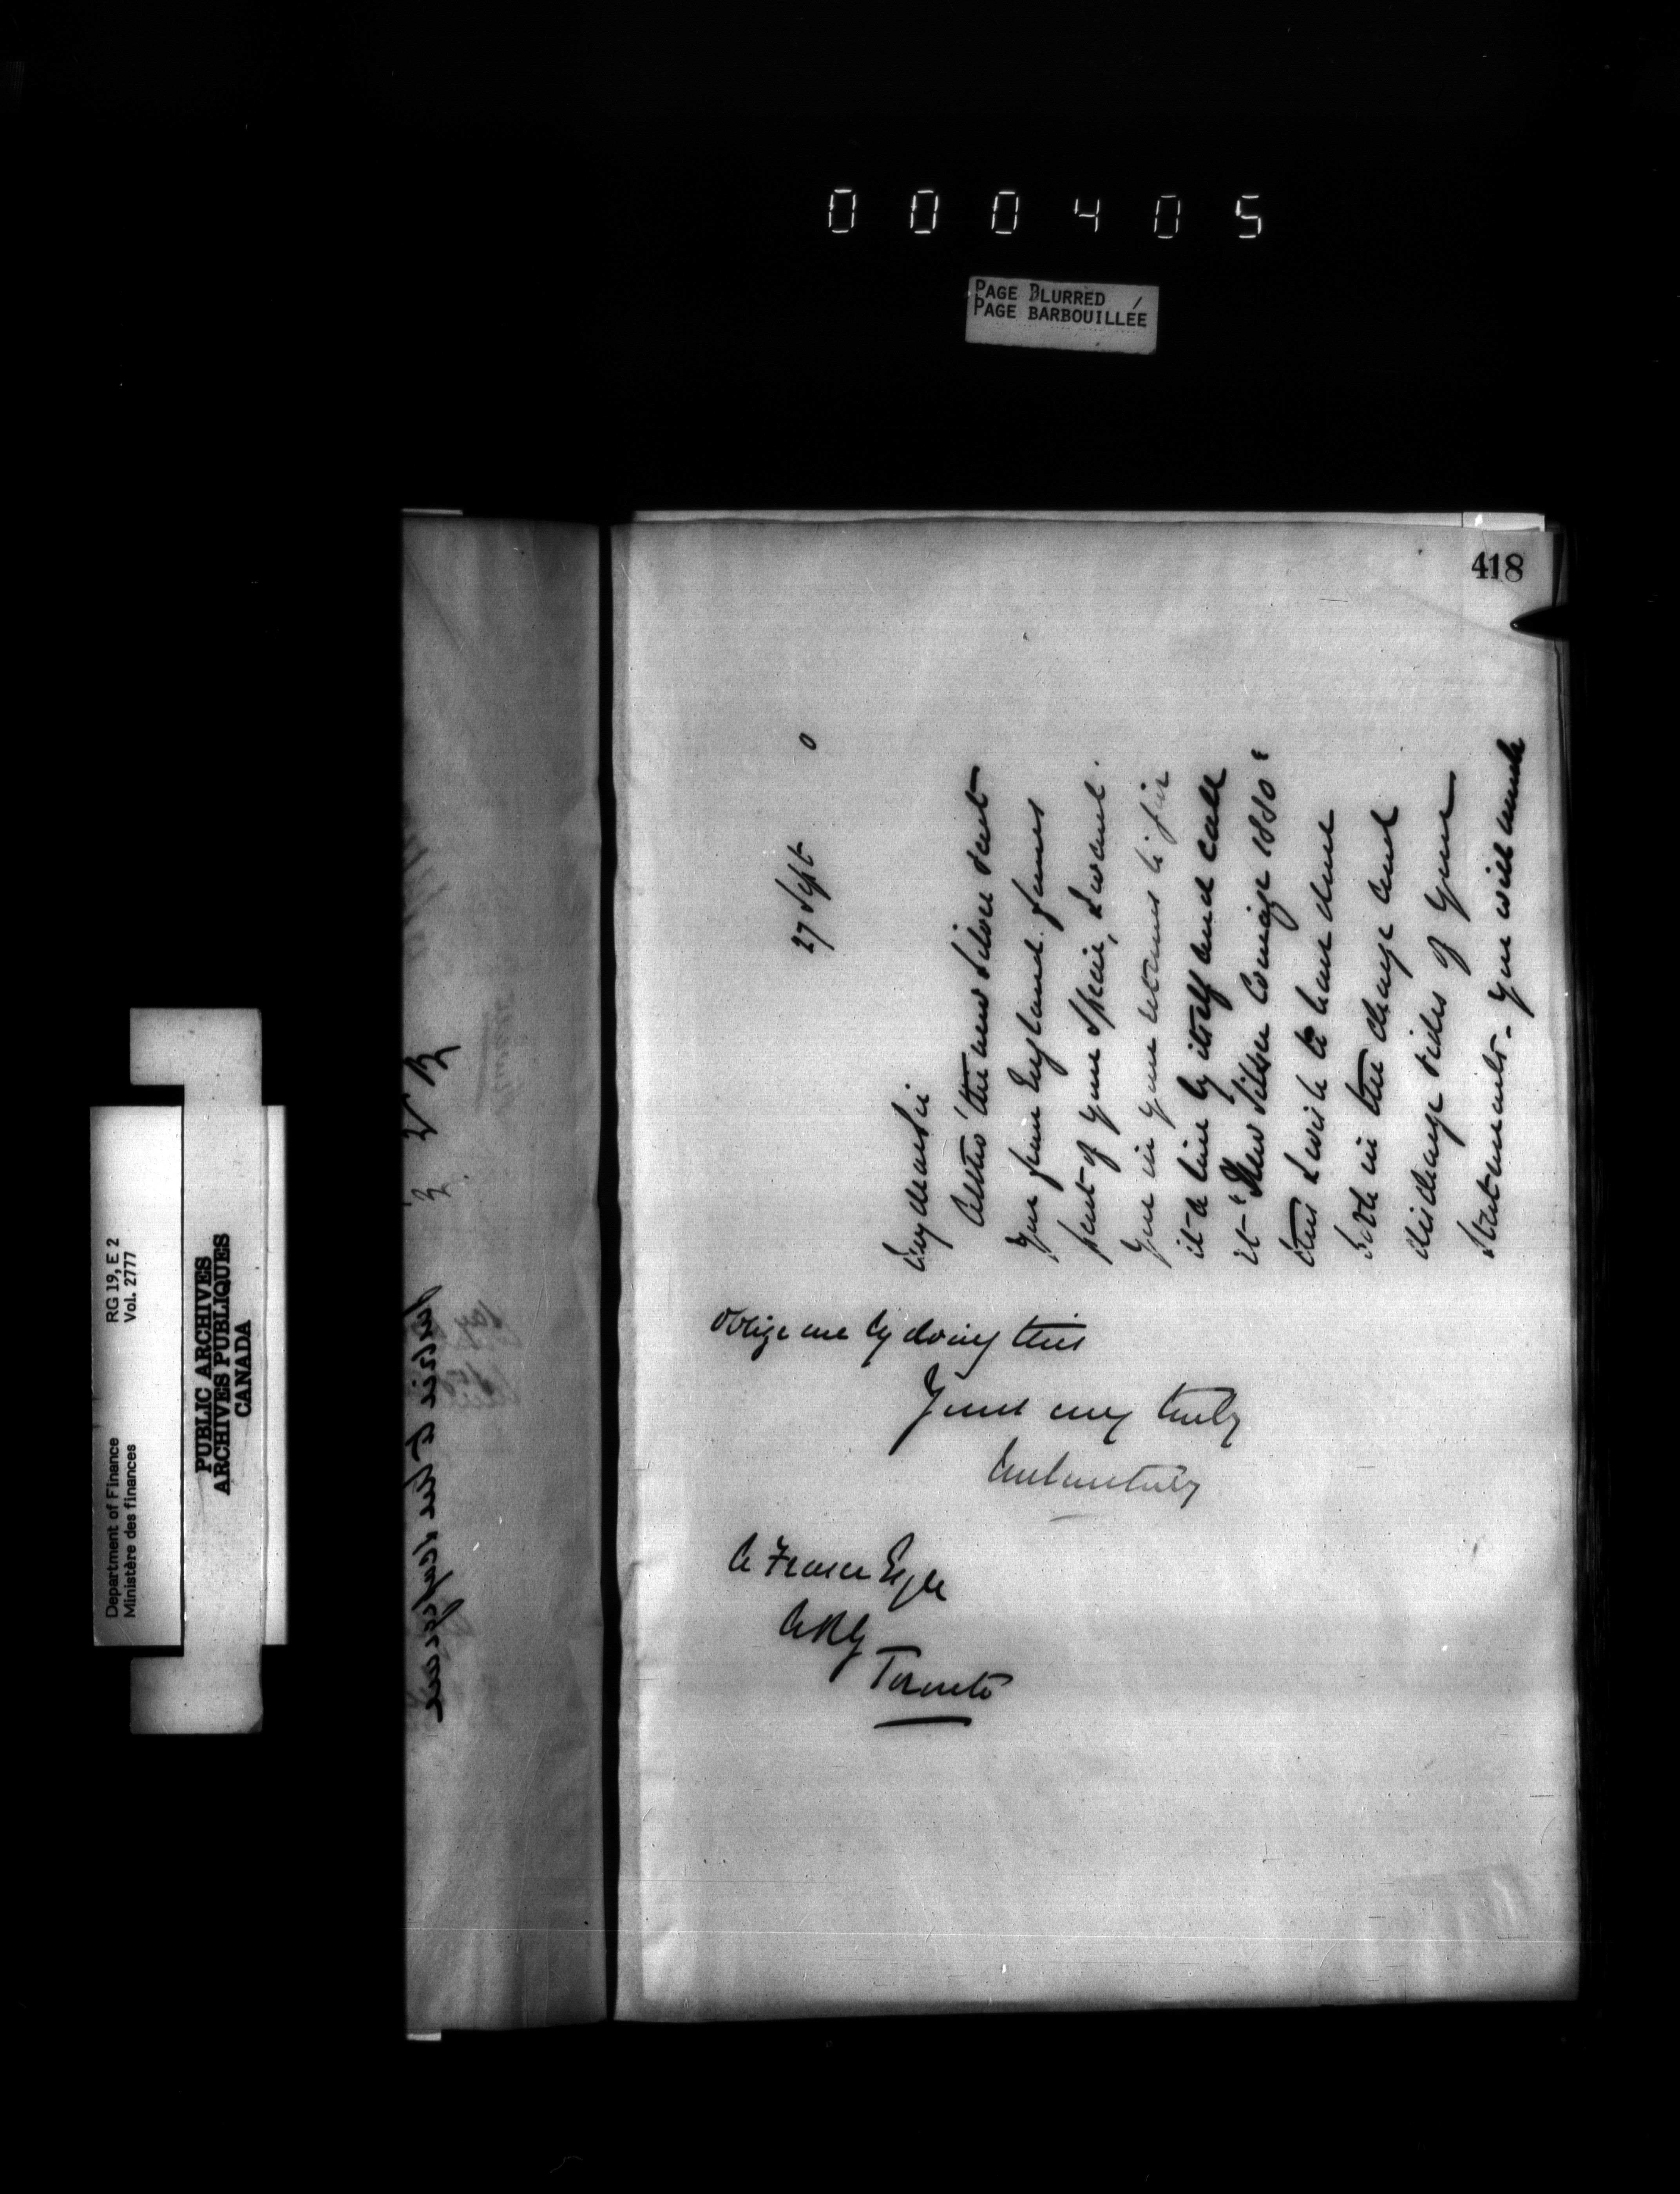 000405
PAGE BLURRED
PAGE BARBOUILLÉE
418
27 Sept 0
My dear Sir
Altho' the new Silver sent
you from England forms
part of your Specie, I want
you in your returns to give
it a line by itself and call
it "New Silver Coinage 1880"
this I wish to have done
both in the charge and
discharge sides of your
Statements - You will much
oblige me by doing this
Yours very truly
A Fraser Esqre
ARG
Toronto
Department of Finance
Ministère des finances
RG 19, E 2
Vol. 2777
PUBLIC ARCHIVES
ARCHIVES PUBLIQUES
CANADA